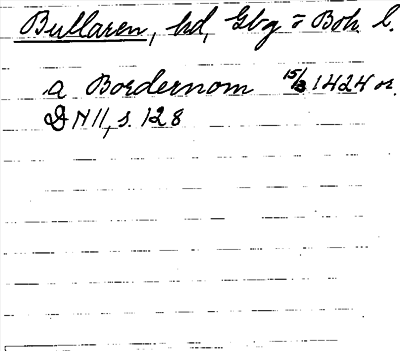 Bullaren, hd, Gbg o Boh l.
a Bordernom 15/3 1424 or.
DN 11, s. 128